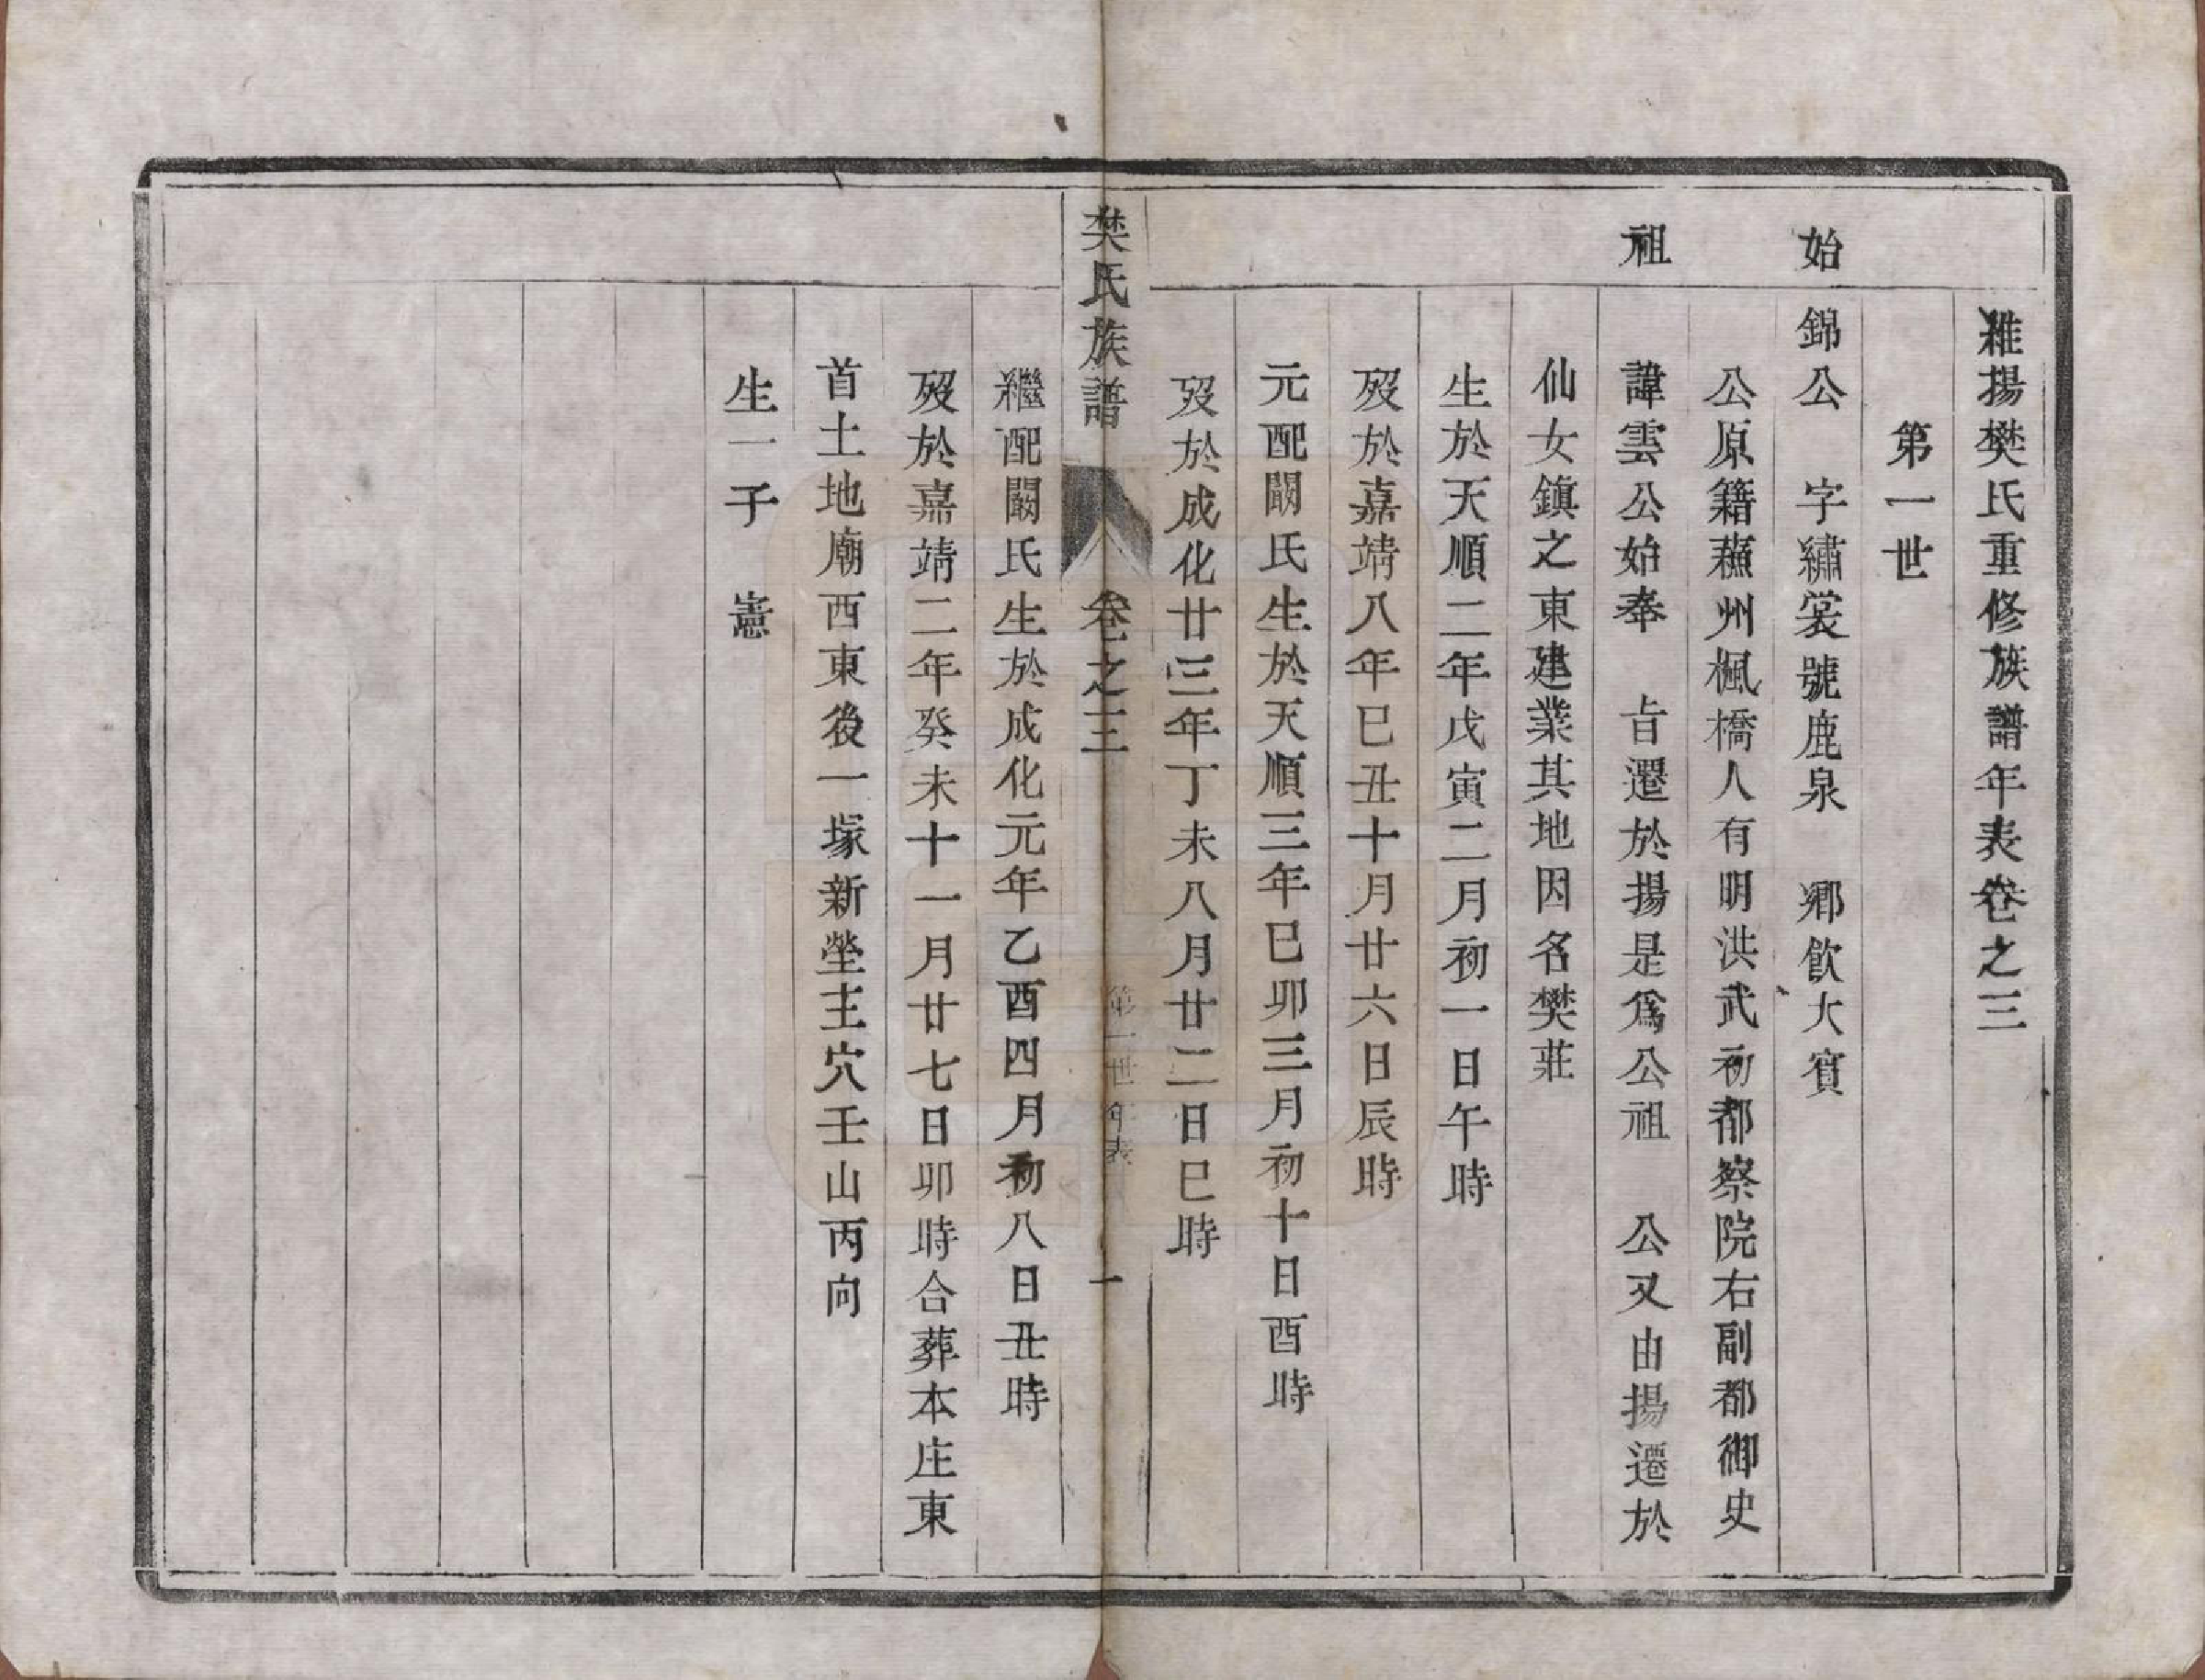 維揚樊氏重修族譜年表卷之三
第一世
始
錦公　字繡裳號鹿泉　鄉飲大賓
公原籍蘓州楓橋人有明洪武初都察院右副都御史
祖
諱雲公始奉　旨遷於揚是爲公祖　公又由揚遷於
仙女鎮之東建業其地因名樊莊
生於天順二年戊寅二月初一日午時
歿於嘉靖八年巳丑十月廿六日辰時
元配闞氏生於天順三年巳卯三月初十日酉時
歿於成化廿三年丁未八月廿二日巳時
樊氏族譜
卷之三
第一世年表
一
繼配闞氏生於成化元年乙酉四月初八日丑時
歿於嘉靖二年癸未十一月廿七日卯時合葬本庄東
首土地廟西東後一塚新塋主穴壬山丙向
生一子　憲